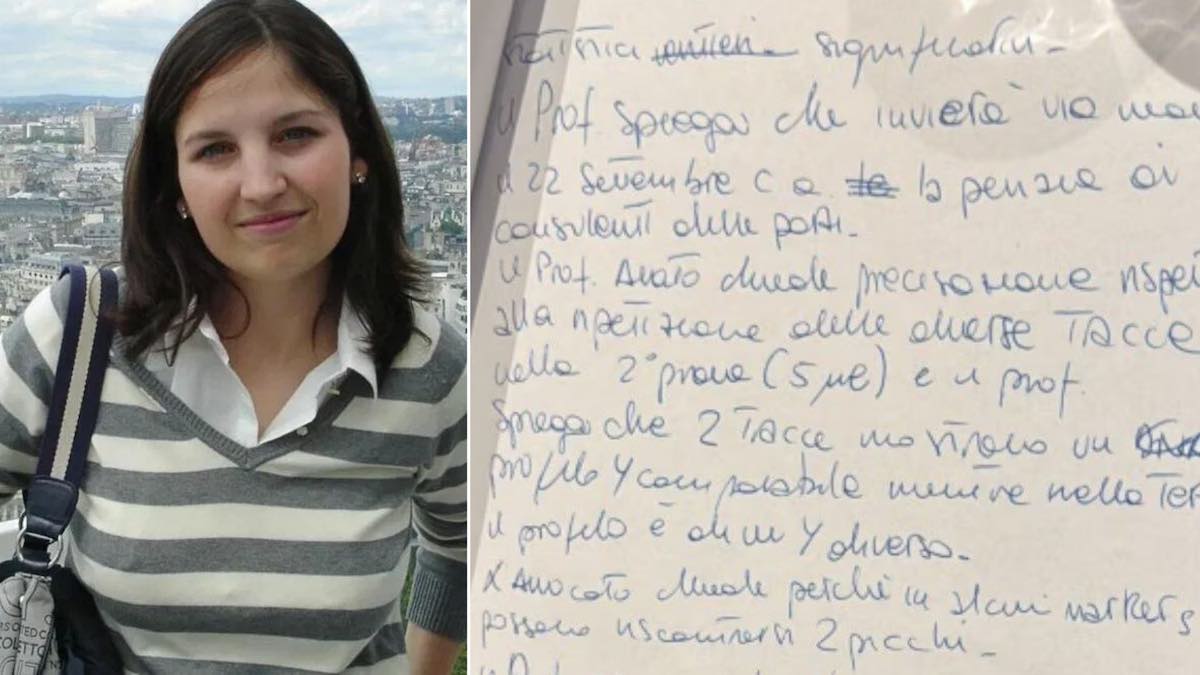 statistica significativi -
il Prof. Spiega che invierà via mai
il 22 Settembre c a. la perizia ai
consulenti delle parti.
il Prof. chiede precisazione rispe
alla ripetizione delle diverse TACCE
nella 2° prova (5 µl) e il prof.
Spiega che 2 TACCE mostrano un
profilo Y comparabile mentre nella Ter
il profilo è di un Y diverso.
L'Avvocato chiede perchè in alcuni markers
possono riscontrarsi 2 picchi. -
il Prof
COLETTO